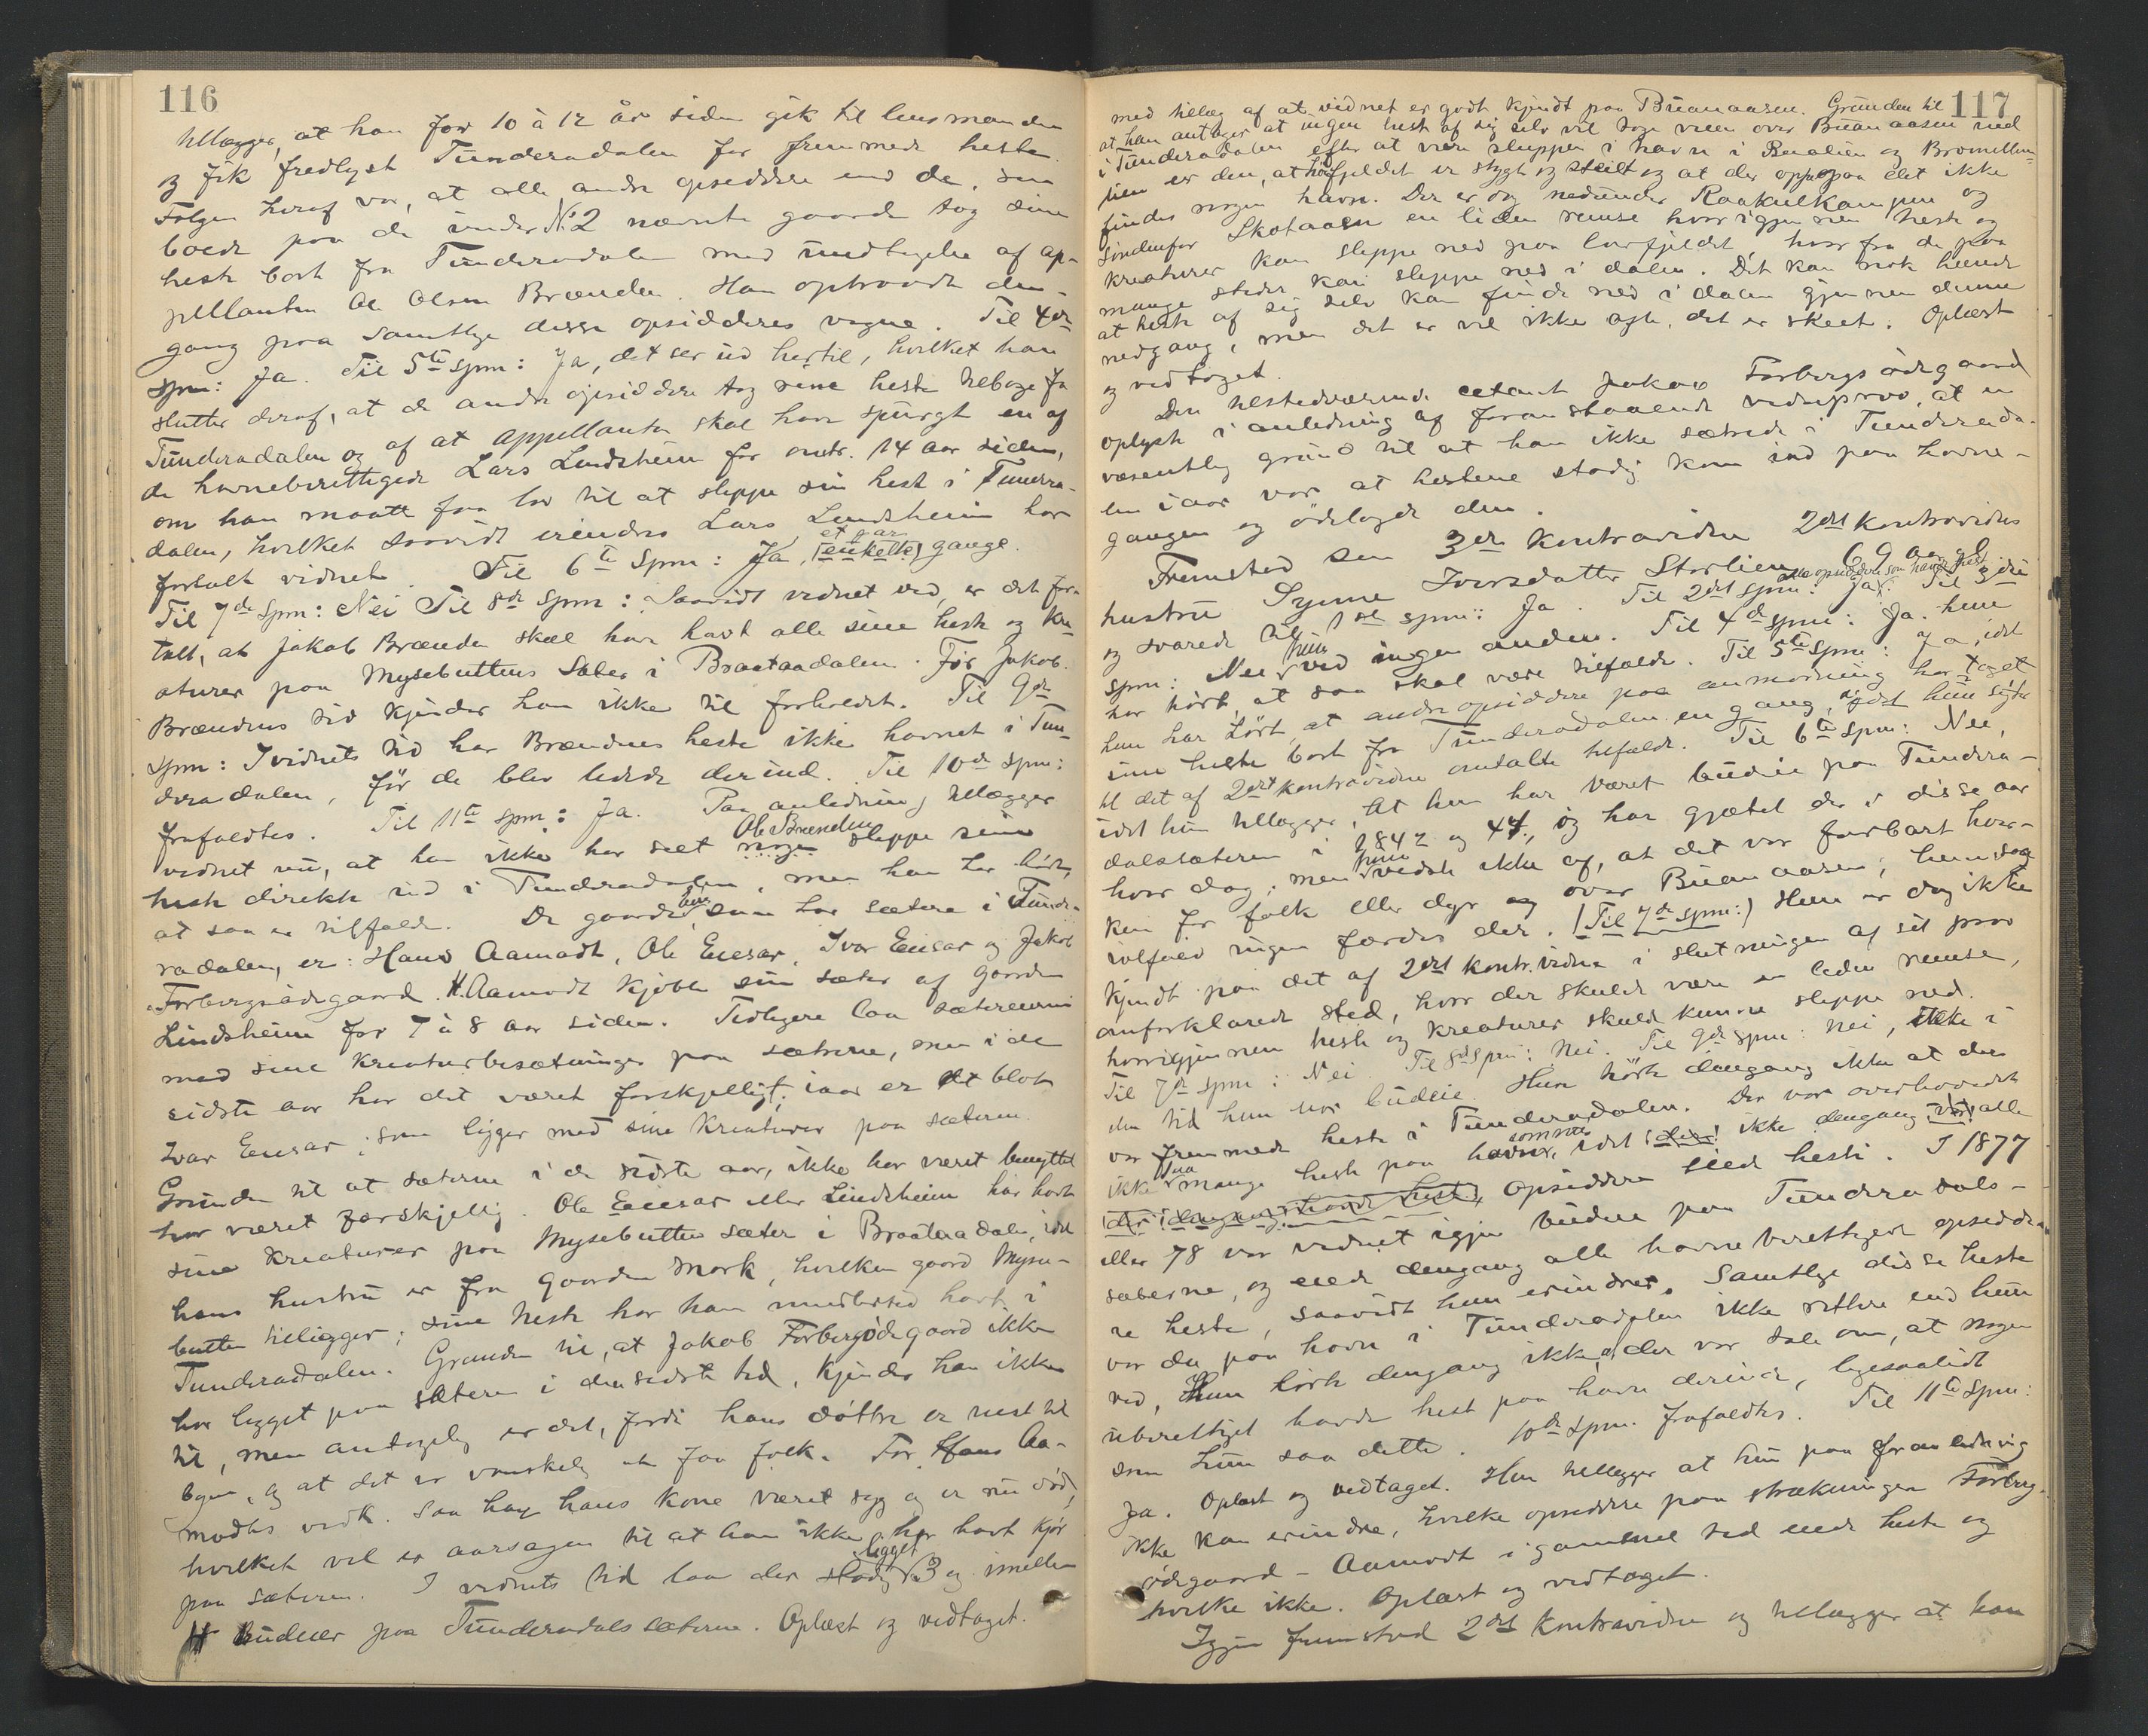 116
tillægger, at han for 10 à 12 år siden gik til lensmanden
og fik fredlyst Tunderadalen for fremmede heste.
Følgen heraf var, at alle andre opsiddere end de, som
boede paa de under No 2 nævnte gaarde tog sine
heste bort fra Tunderadalen med undtagelse af ap-
pellanten Ole Olsen Brænden. Han optraadte den-
gang paa samtlige disse opsidderes vegne. Til 4de
spm: Ja. Til 5te spm: Ja, det ser ud hertil, hvilket han
slutter deraf, at de andre opsiddere tog sine heste tilbage fra
Tunderadalen og af at appellanten skal have spurgt en af
de havneberettigede Lars Lindsheim for omtr. 14 aar siden,
om han maatte faa lov til at slippe sin hest i Tundera-
dalen, hvilket saavidt erindres Lars Lindsheim har
fortalt vidnet. Til 6te Spm: Ja, (enkelte) et par gange.
Til 7de Spm: Nei Til 8de Spm: Saavidt vidnet ved, er det for-
talt, at Jakob Brænden skal have havt alle sine heste og kre-
aturer paa Mysebuttens Sæter i Braataadalen. Før Jakob
Brændens tid kjender han ikke til forholdet. Til 9de
Spm: I vidnets tid har Brændens heste ikke havnet i Tun-
deradalen, før de blev ledede derind. Til 10de Spm:
frafaldtes. Til 11te spm: Ja. Paa anledning tillægger
vidnet nu, at han ikke har seet nogen Ole Brænden slippe sine
heste direkte ind i Tunderadalen, men han har hørt,
at saa er tilfælde. De gaarde, som har sætere i Tunde-
radalen, er: Hans Aamodt, Ole Eensar, Ivar Eensar og Jakob
Forbergsødegaard. H. Aamodt kjøbte sin sæter af gaarden
Lindsheim for 7 à 8 aar siden. Tidligere laa sætereierne
med sine kreaturbesætninger paa sætrene, men i de
sidste aar har det været forskjelligt; iaar er det blot
Ivar Eensar, som ligger med sine kreaturer paa sæteren.
Grunden til at sæterne i de sidste aar, ikke har været benyttet
har været forskjellig. Ole Eensar eller Lindsheim har havt
sine kreaturer paa Mysebuttens sæter i Braataadalen, idet
hans hustru er fra gaarden Mork, hvilken gaard Myse-
butten tilligger; sine heste har han imidlertid havt i
Tunderadalen. Grunden til, at Jakob Forbergsødegaard ikke
har ligget paa sæteren i den sidste tid, kjender han ikke
til, men antagelig er det, fordi hans døttre er reist til
byen, og at det er vanskelig at faa folk. For Hans Aa-
modts vedk. saa har hans kone været syg og er nu død,
hvilket vel er aarsagen til at han ikke har havt kjør
paa sæteren. I vidnets tid laa der stadig ligget 3 og imellem
4 budeier paa Tunderadalssæterne. Oplæst og vedtaget.
117
med tillæg af at vidnet er godt kjendt paa Buanaasen. Grunden til
at han antager at ingen hest af sig selv vil søge veien over Buanaasen ned
i Tunderadalen efter at være sluppen i havn i Bualien og Bromillem-
lien er den, at høifjeldet er stygt og steilt og at der oppe paa det ikke
findes nogen havn. Der er og nedunder Raakulkampen og
søndenfor Skotaaen en liden remse hvorigjennem heste og
kreaturer kan slippe ned paa lavfjeldet, hvorfra de paa
mange steder kan slippe ned i dalen. Det kan nok hænde
at heste af sig selv kan finde ned i dalen gjennem denne
nedgang, men det er vel ikke ofte, det er skeet. Oplæst
og vedtaget.
Den tilstedeværende citant Jakob Forbergsødegaard
oplyste i anledning af foranstaaende vidneprov, at en
væsentlig grund til at han ikke sætrede i Tunderada-
len iaar var at hestene stadig kom ind paa havne-
gangen og ødelagde den.
Fremsted som 3die kontravidne 2det kontravidnes
hustru Synne Iversdatter Storlien 69 aar gl
og svarede til 1ste spm: Ja. Til 2det spm: Ja, alle opsiddere som havde hest. Til 3die
spm: Nei hun ved ingen anden. Til 4de spm: Ja. hun
har hørt, at saa skal være tilfælde. Til 5te Spm: Ja, idet
hun har hørt, at andre opsiddere paa anmodning har taget
sine heste bort fra Tunderadalen en gang, idet hun sigter
til det af 2det kontravidne omtalte tilfælde. Til 6te Spm: Nei,
idet hun tillægger, at hun har været budeie paa Tundera-
dalssæteren i 1842 og 44, og har gjætet der i disse aar
hver dag; men hun vidste ikke af, at det var farbart hver-
ken for folk eller dyr over Buanaasen; hun saa
ialfald ingen færdes der. (Til 7de spm:) Hun er dog ikke
kjendt paa det af 2det kontr. vidne i slutningen af sit prov
omforklarede sted, hvor der skulde være en liden remse,
hvorigjennem heste og kreaturer skulde kunne slippe ned.
Til 7de Spm: Nei. Til 8de Spm: Nei. Til 9de spm: Nei, ikke i
den tid hun var budeie. Hun hørte dengang ikke at der
var fremmede heste i Tunderadalen. Der var overhovedet
ikke saa mange heste paa havn som nu, idet (der) ikke dengang (var) alle
(der dengang havde hest) opsiddere eiede heste. I 1877
eller 78 var vidnet igjen budeie paa Tunderadals-
sæterne, og eiede dengang alle havneberettigede opsidde-
re heste, saavidt hun erindrer. Samtlige disse heste
var da paa havn i Tunderadalen ikke rettere end hun
ved, Hun hørte dengang ikke, at der var tale om, at nogen
uberettiget havde hest paa havn derinde, ligesaalidt
som hun saa dette. 10de Spm. frafaldtes. Til 11te Spm:
Ja. Oplæst og vedtaget. Hun tillægger at hun paa foranledning
ikke kan erindre, hvilke opsiddere paa strækningen Forberg-
ødegaard - Aamodt i gammel tid eiede heste og
hvilke ikke. Oplæst og vedtaget.
Igjen fremstod 2det kontravidne og tillægger at han